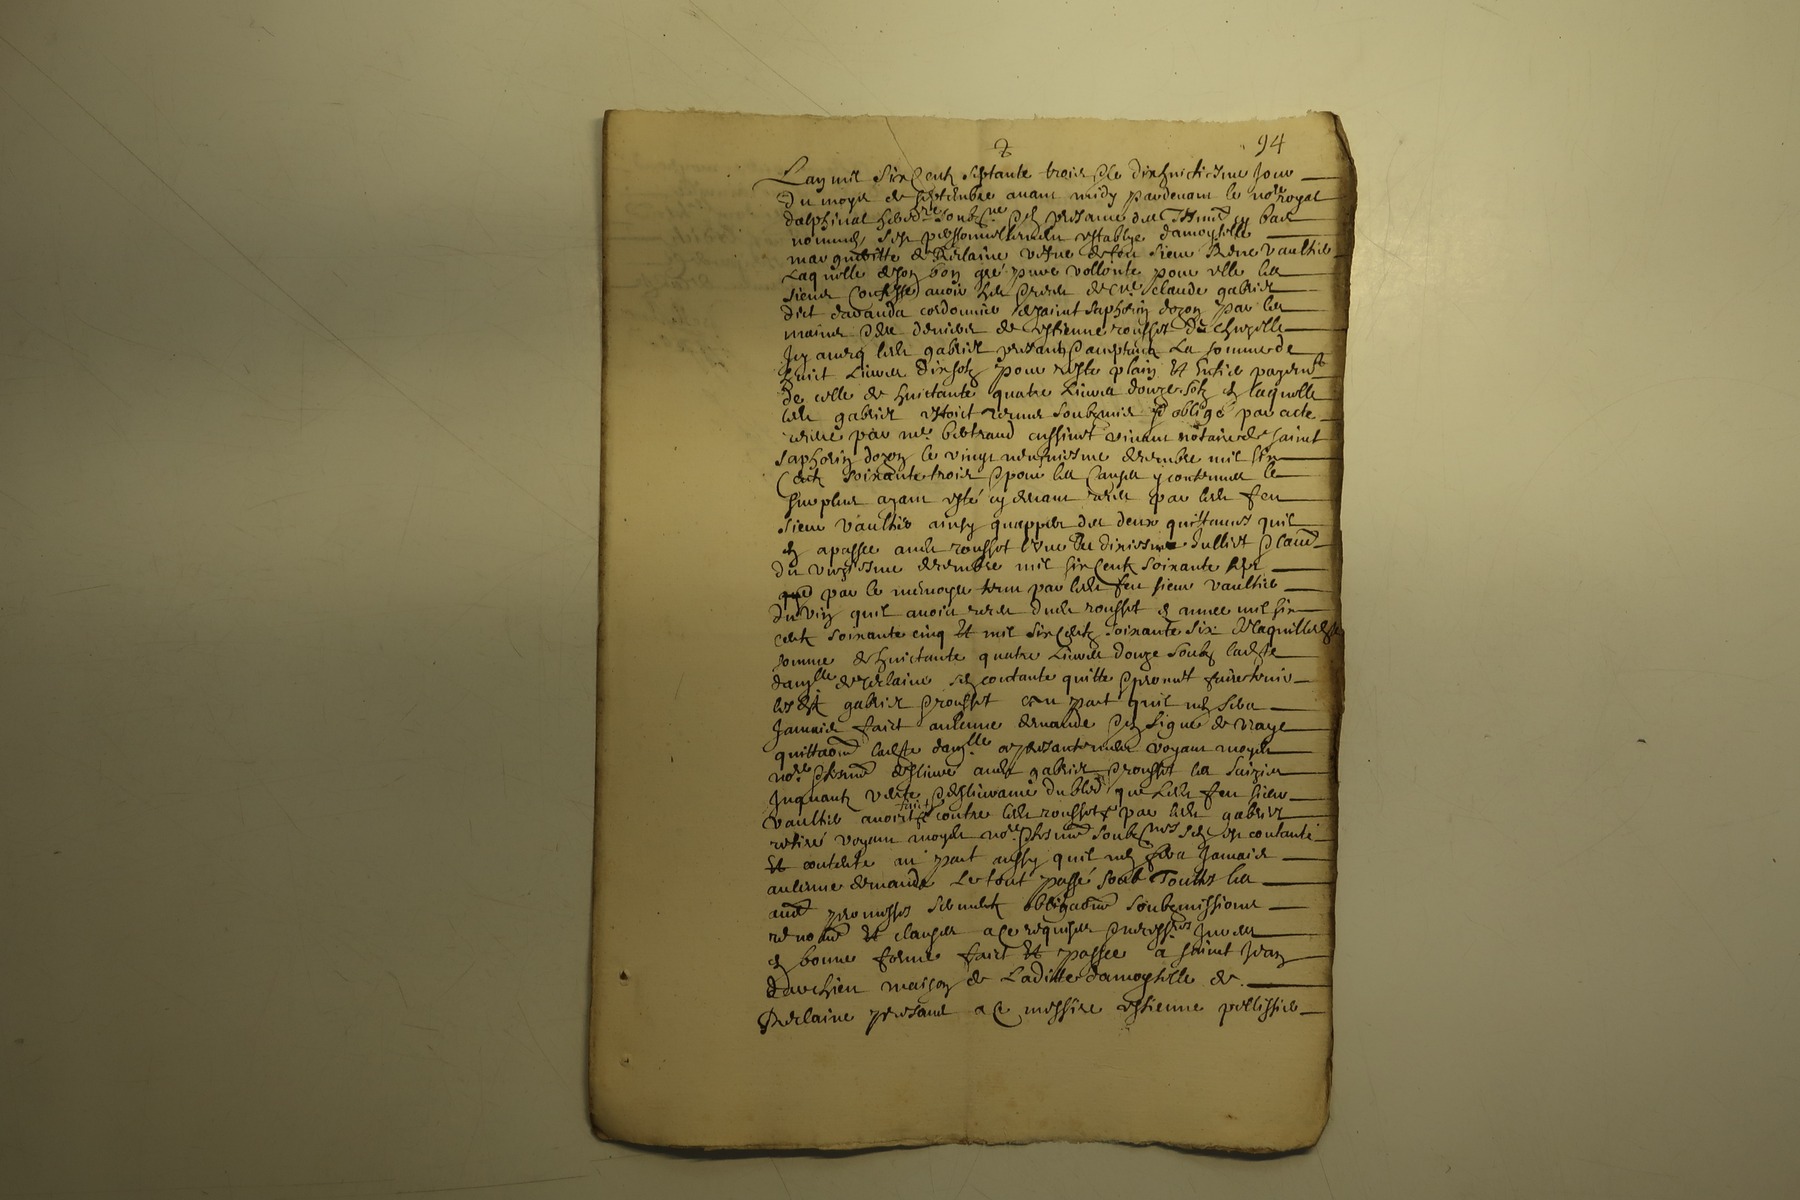 94
Lan mil six Centz septante trois & le dixhuictiesme Jour
du moys de septembre avant midy pardevant le no.re royal
dalphinal hered.re soubz.ne & en presance des tesmoins en bas
nommés sest personnellement establye damoyselle
margueritte de vefve de feu sieur vaulthier
Laquelle de son bon gré pure vollonté pour elle les
siens Confesse avoir heu & receu de m.re claude gabriel
dict dadanda cordonnier de saint saphorin dozon par les
mains & des deniers de estienne rousset de
Icy avecq led. gabriel presantz & acceptants La somme de
huict Livres dix solz pour reste plain et entier payement
de celle de huictante quatre Livres douze solz en laquelle
led. gabriel estoit tenu soubzmis & obligé par acte
receu par me. bertrand vivant notaire de saint
saphorin dozon le vingt neufviesme decembre mil six
Centz soixante trois & pour les Causes y contenues le
surplus ayant esté cy devant receu par led. feu
sieur vaulthier ainsy quappert des deux quittances quil
en a passée aud. rousset lune du dixiesme Juillet & lautre
du vingtiesme decembre mil six Centz soixante
que par le memoyre tenu par led. feu sieur vaulthier
du vin quil avoit receu dud. rousset en année mil six
centz soixante cinq et mil six Centz soixante six de laquelle
somme de huictante quatre Livres douze soulz ladicte
dam.lle de sest contante quitte & promet faire tenir
lesd. gabriel & rousset en part quil nen sera
Jamais faict aulcune demande & en signe de vraye
quittance ladicte dam.lle a presantement voyant moydit
no.re & tesmoins deslivré aud. gabriel & rousset les saizies
Inquantz vente & deslivrance du bled que led. feu sieur
vaulthier avoit faict contre led. rousset & par led. gabriel
retiré voyant moydit no.re & tesmoins soubz.nes sen est contanté
et contente au part aussy quil nen sera Jamais
aulcune demande Le tout passé soub touttes les
aud. promesses sermentz obligaons soubzmissions
renoaons et clauses a ce requises & necess.res Jurées
en bonne forme faict et passée a saint Jean
maison de Laditte damoyselle de
presant a ce messire estienne pellissier